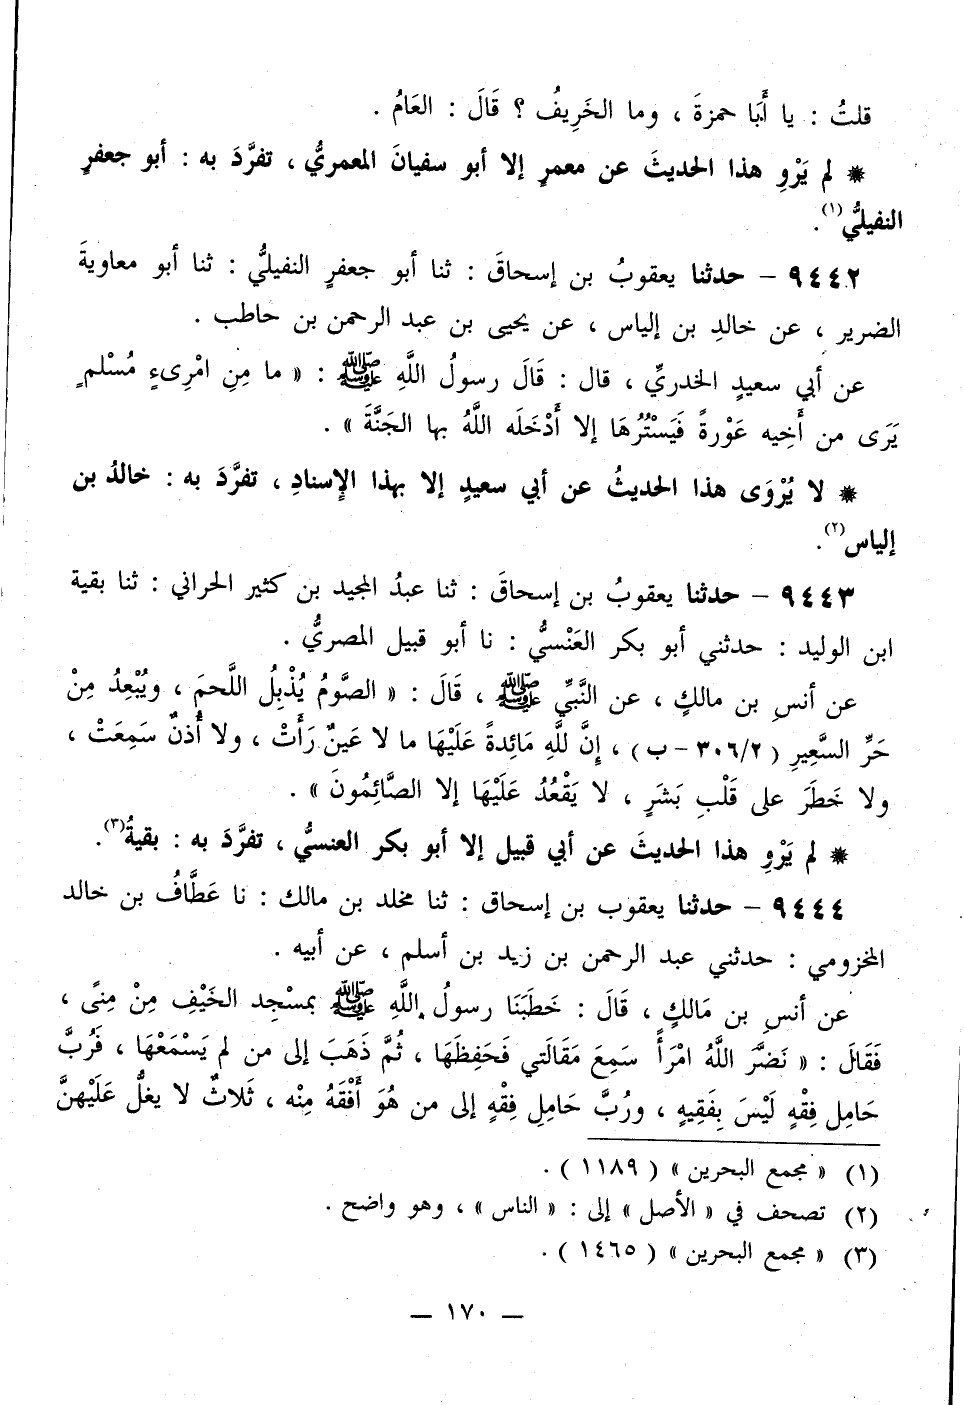 قلتُ : يا أَبَا حمزةَ ، وما الخَرِيفُ ؟ قَالَ : العَامُ .
* لم يَرْوِ هذا الحديثَ عن معمرٍ إلا أبو سفيانَ المعمريُّ ، تفرَّدَ به : أبو جعفرٍ
النفيليُّ(١).
٩٤٤٢ – حدثنا يعقوبُ بن إسحاقَ : ثنا أبو جعفرٍ النفيليُّ : ثنا أبو معاويةَ
الضرير ، عن خالدِ بن إلياس ، عن يحيى بن عبد الرحمن بن حاطب .
عن أبي سعيدٍ الخدريِّ ، قال : قَالَ رسولُ اللَّهِ ﷺ : « ما مِنِ امْرِىءٍ مُسْلمٍ
يَرَى من أَخِيه عَوْرةً فَيَسْتُرُهَا إلا أَدْخَلَه اللَّهُ بها الجَنَّةَ » .
* لا يُرْوَى هذا الحديثُ عن أبي سعيدٍ إلا بهذا الإسنادِ ، تفرَّدَ به : خالدُ بن
إلياس(٢).
٩٤٤٣ – حدثنا يعقوبُ بن إسحاقَ : ثنا عبدُ المجيد بن كثير الحراني : ثنا بقية
ابن الوليد : حدثني أبو بكر العَنْسيُّ : نا أبو قبيل المصريُّ .
عن أنسِ بن مالكٍ ، عن النَّبيِّ ﷺ ، قَالَ : « الصَّومُ يُذْبِلُ اللَّحمَ ، ويُبْعِدُ مِنْ
حَرِّ السَّعِيرِ ( ٣٠٦/٢ – ب ) ، إِنَّ للَّهِ مَائِدةً عَلَيْهَا ما لا عَينٌ رَأَتْ ، ولا أُذنٌ سَمِعَتْ ،
ولا خَطَرَ على قَلْبِ بَشَرٍ ، لا يَقْعُدُ عَلَيْهَا إلا الصَّائِمُونَ » .
* لم يَرْوِ هذا الحديثَ عن أبي قبيل إلا أبو بكر العنسيُّ ، تفرَّدَ به : بقيةُ(٣).
٩٤٤٤ – حدثنا يعقوب بن إسحاق : ثنا مخلد بن مالك : نا عَطَّافُ بن خالد
المخزومي : حدثني عبد الرحمن بن زيد بن أسلم ، عن أبيه .
عن أنسِ بن مَالكٍ ، قَالَ : خَطَبَنَا رسولُ اللَّهِ ﷺ بمسْجِد الخَيْفِ مِنْ مِنىً ،
فَقَالَ : « نَضَّرَ اللَّهُ امْرَأً سَمِعَ مَقَالَتي فَحَفِظَهَا ، ثُمَّ ذَهَبَ إلى من لم يَسْمَعْهَا ، فَرُبَّ
حَامِلِ فِقْهٍ لَيْسَ بِفَقِيهٍ ، ورُبَّ حَامِلِ فِقْهٍ إلى من هُوَ أَفْقَهُ مِنْه ، ثَلاثٌ لا يغلُّ عَلَيْهنَّ
(١) « مجمع البحرين » ( ١١٨٩ ) .
(٢) تصحف في « الأصل » إلى : « الناس » ، وهو واضح .
(٣) « مجمع البحرين » ( ١٤٦٥ ) .
– ١٧٠ –